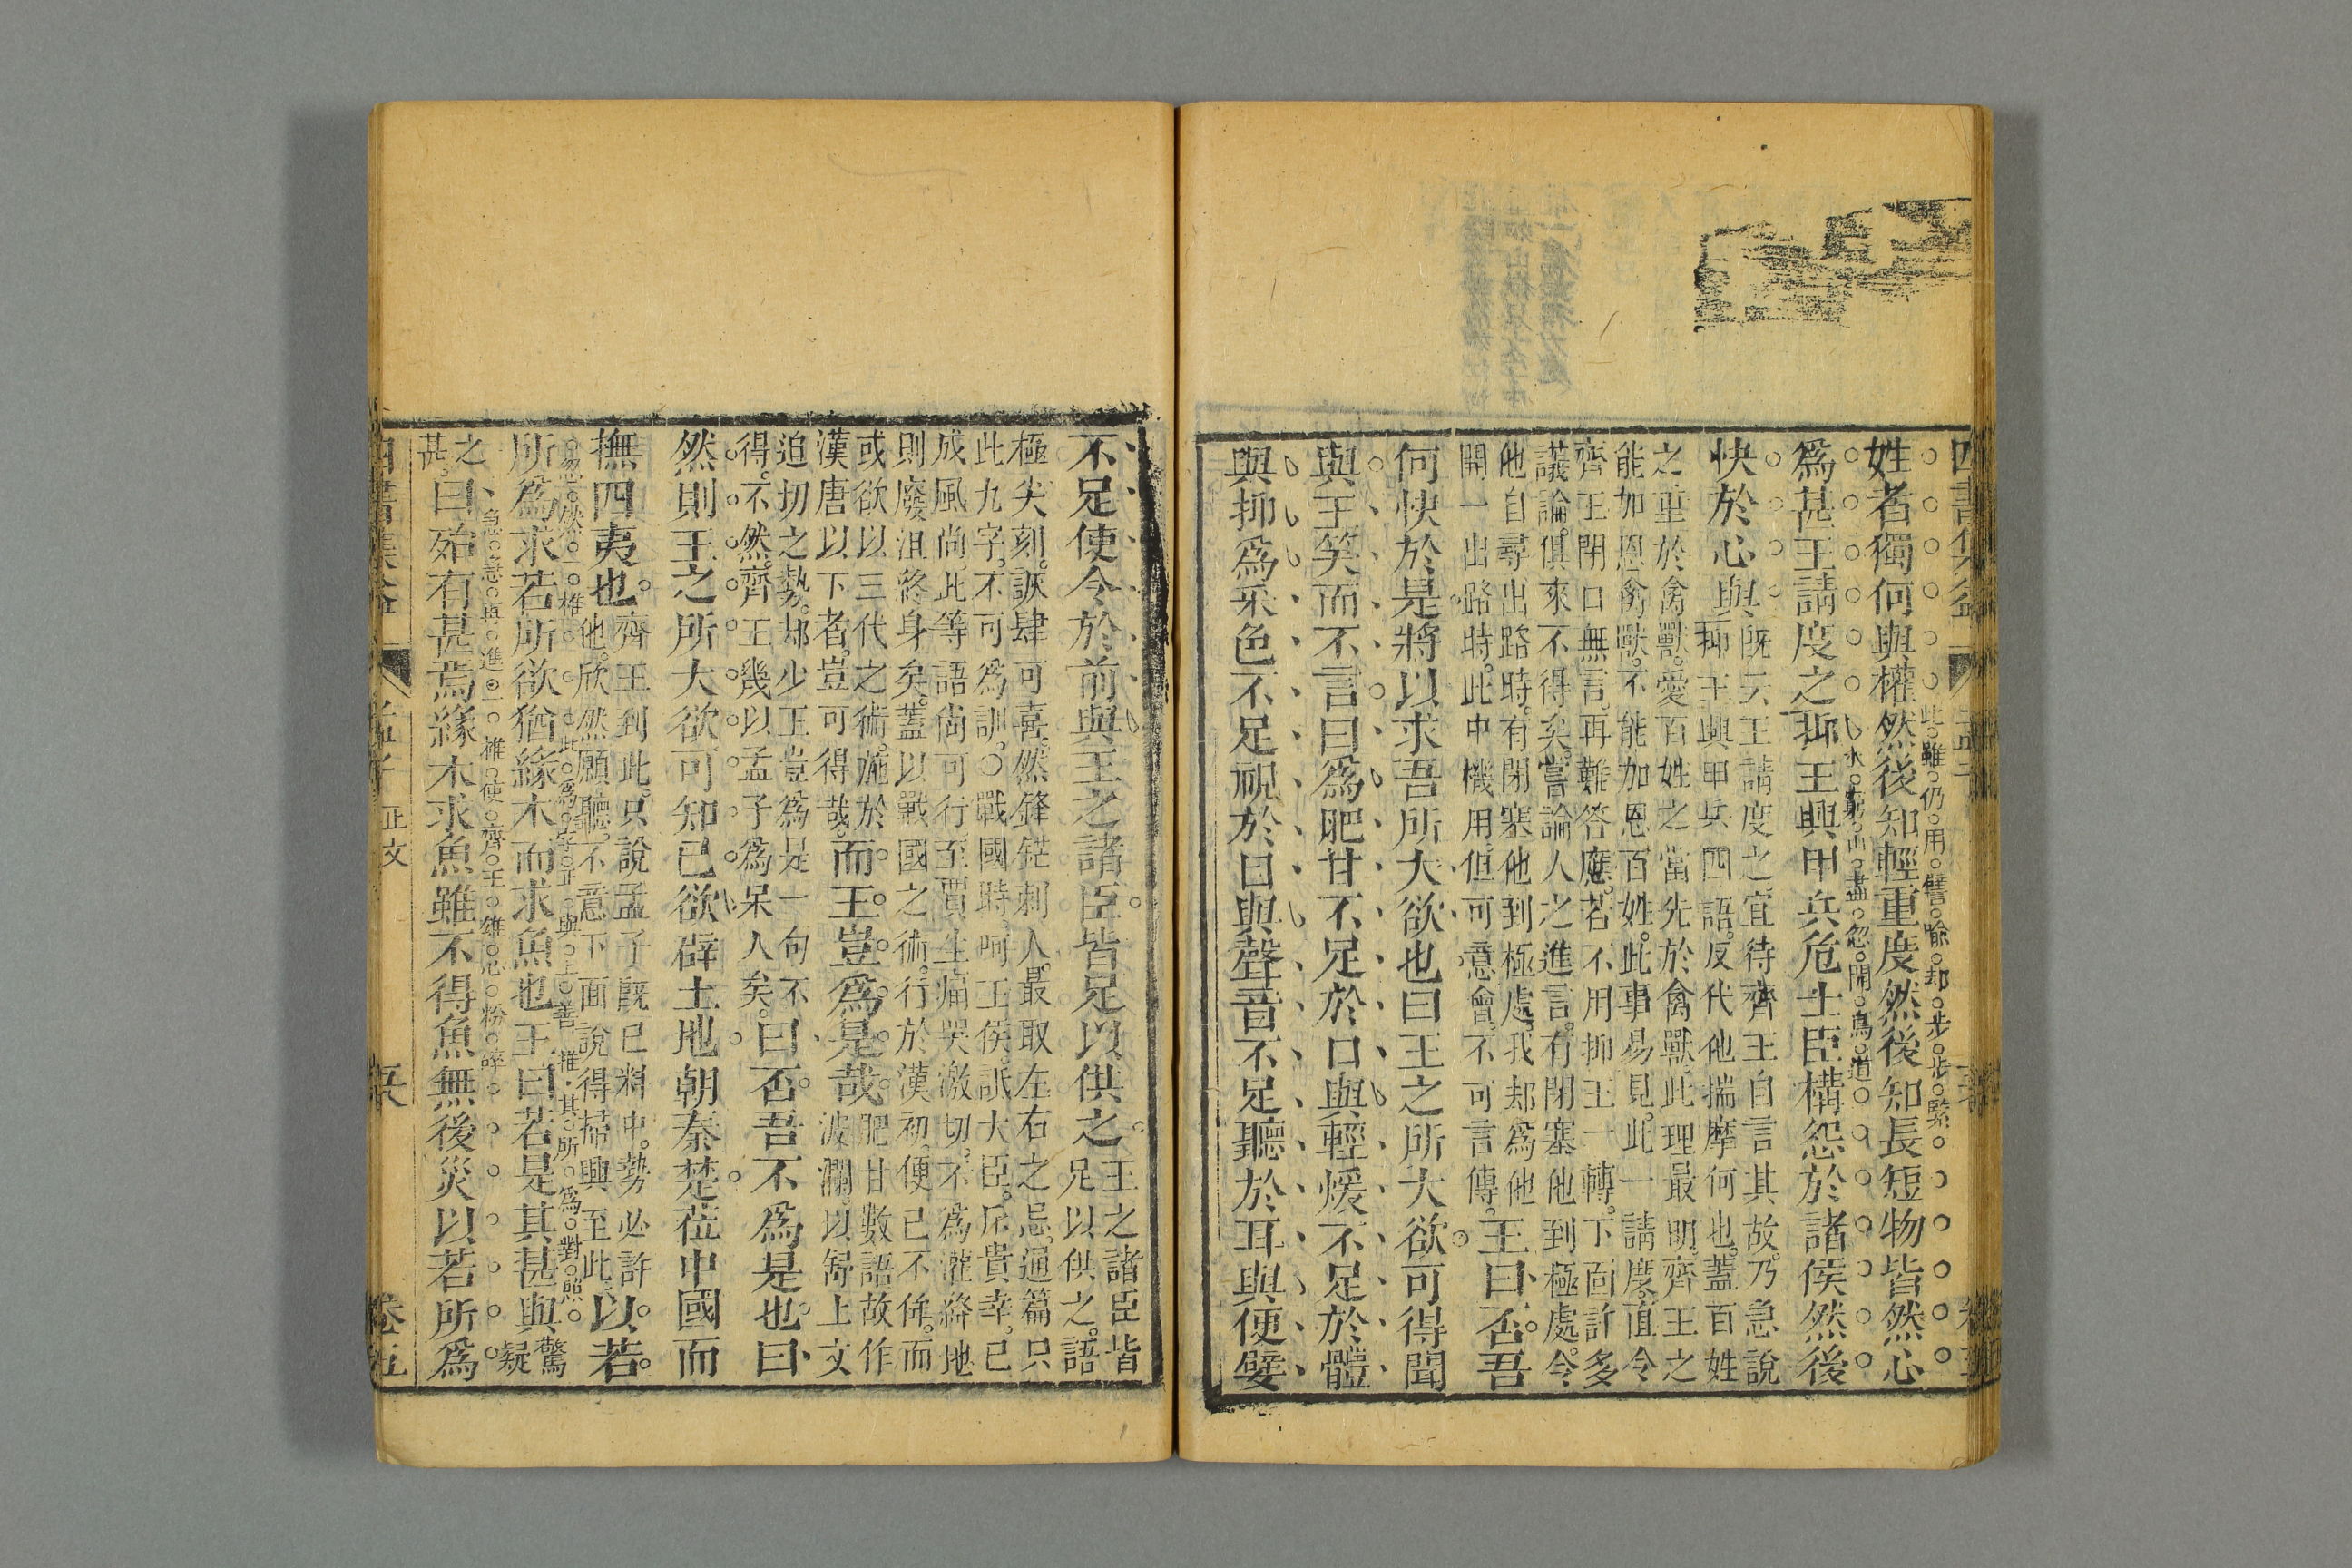 姓者獨何與權然後知輕重度然後知長短物皆然心
此雖仍用譬喻却步步緊
爲甚王請度之抑王興甲兵危士臣構怨於諸侯然後
水窮山盡忽開鳥道
快於心與
既云王請度之宜待齊王自言其故乃急說
抑王興甲兵四語反代他揣摩何也蓋百姓
之重於禽獸愛百姓之當先於禽獸此理最明齊王之
能加恩禽獸不能加恩百姓此事易見此一請度直令
齊王閉口無言再難答應若不用抑王一轉下面許多
議論俱來不得矣嘗論人之進言有閉塞他到極處令
他自尋出路時有閉塞他到極處我却爲他
開一出路時此中機用但可意會不可言傳
王曰否吾
何快於是將以求吾所大欲也曰王之所大欲可得聞
與王笑而不言曰爲肥甘不足於口與輕煖不足於體
與抑爲采色不足視於目與聲音不足聽於耳與便嬖
不足使令於前與王之諸臣皆足以供之
王之諸臣皆
足以供之語
極尖刻詼肆可喜然鋒鋩刺人最取左右之忌通篇只
此九字不可爲訓○戰國時呵王侯詆大臣斥貴幸已
成風尚此等語尚可行至賈生痛哭激切不爲灌絳地
則廢沮終身矣蓋以戰國之術行於漢初便已不侔而
或欲以三代之術施於
漢唐以下者豈可得哉
而王豈爲是哉
肥甘數語故作
波瀾以舒上文
迫切之勢却少王豈爲是一句不
得不然齊王幾以孟子爲呆人矣
曰否吾不爲是也曰
然則王之所大欲可知已欲辟土地朝秦楚莅中國而
撫四夷也
齊王到此只說孟子既已料中勢必許
他欣然願聽不意下面說得掃興至此
以若
所爲求若所欲猶緣木而求魚也王曰若是其甚與
驚
疑
之
甚
曰殆有甚焉緣木求魚雖不得魚無後災以若所爲
孟子
正文
卷五